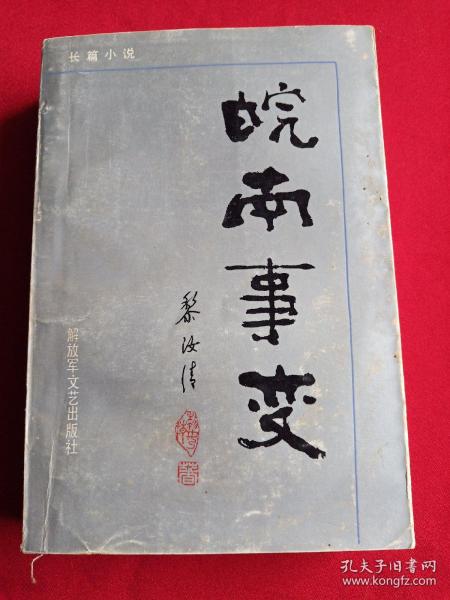 长篇小说
皖南事变
黎汝清
解放军文艺出版社
孔夫子旧书网
www.kongfz.com